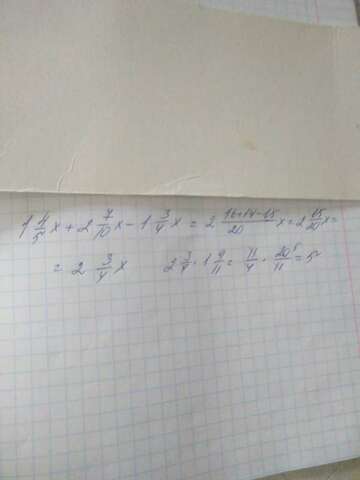 1 4/5 x + 2 7/10 x - 1 3/4 x = 2 16+14-15/20 x = 2 15/20 x =
= 2 3/4 x 2 3/4 · 1 9/11 = 11/4 · 20/11 5 = 5